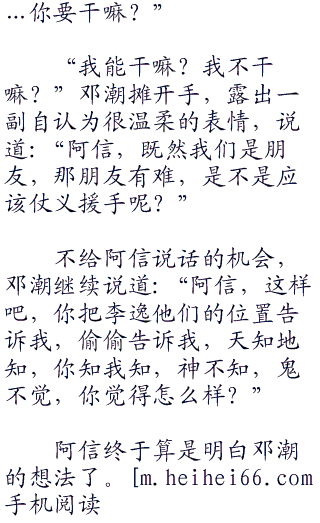 …你要干嘛？”
“我能干嘛？我不干
嘛？”邓潮摊开手，露出一
副自认为很温柔的表情，说
道：“阿信，既然我们是朋
友，那朋友有难，是不是应
该仗义援手呢？”
不给阿信说话的机会，
邓潮继续说道：“阿信，这样
吧，你把李逸他们的位置告
诉我，偷偷告诉我，天知地
知，你知我知，神不知，鬼
不觉，你觉得怎么样？”
阿信终于算是明白邓潮
的想法了。[m.heihei66.com
手机阅读